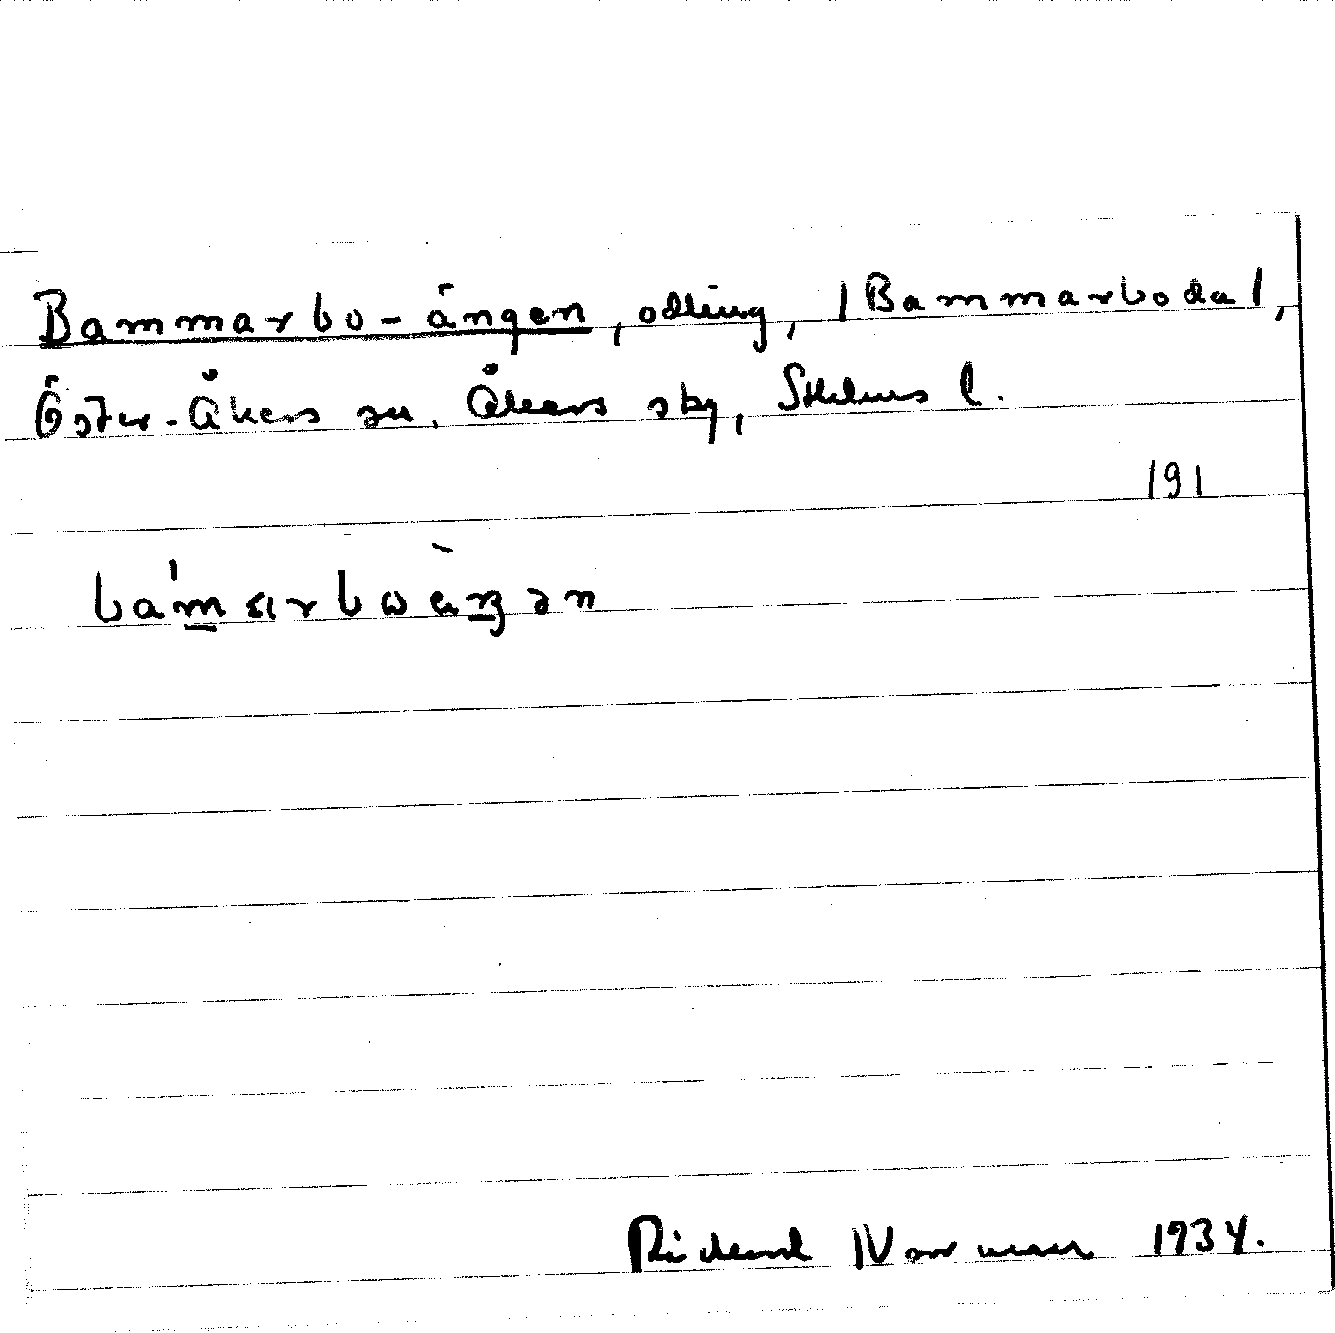 Bammarbo-ängen, odling, |Bammarboda|,
Öster-Åkers sn, Åkers skg, Sthlms l.
191
Rickard Norman 1934.